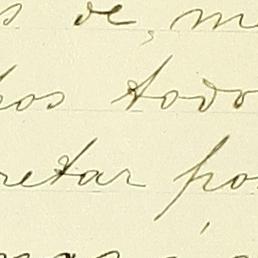 s de, m
os todo
retar po